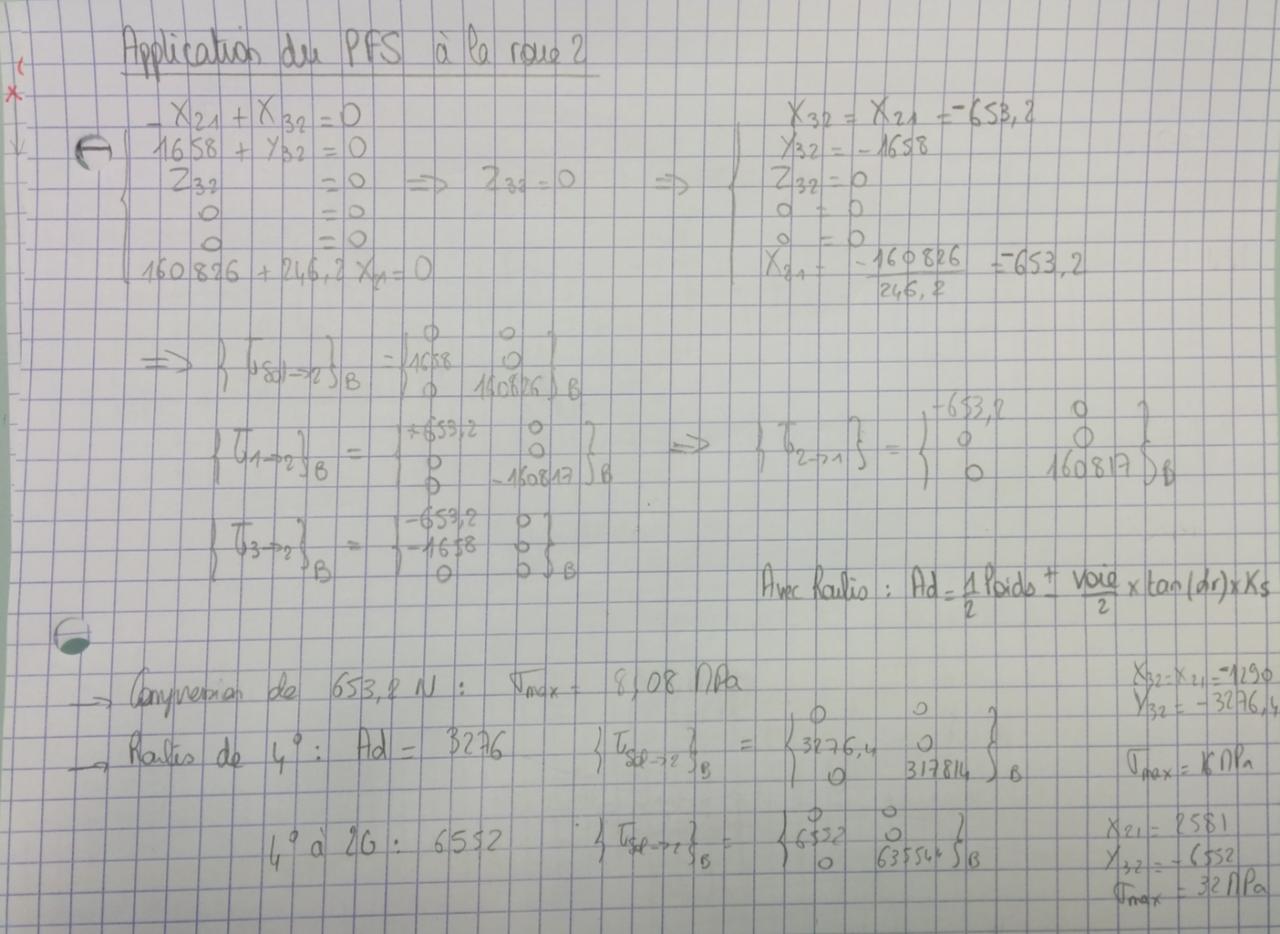 Application du PFS à la roue 2
- X21 + X32 = 0
1658 + Y32 = 0
Z32 = 0 => Z32 = 0 =>
0 = 0
0 = 0
160826 + 246,2 X21 = 0
X32 = X21 = -653,2
Y32 = -1658
Z32 = 0
0 = 0
0 = 0
X21 = -160826 / 246,2 = -653,2
=> { Tsol→2 }B = { 0 0
1658 0
0 160826 }B
{ T1→2 }B = { +653,2 0
0 0
0 -160817 }B
=> { T2→1 } = { -653,2 0
0 0
0 160817 }B
{ T3→2 }B = { -653,2 0
-1658 0
0 0 }B
Avec Roulis : Ad = 1/2 Poids ± voie/2 × tan(dr) × Ks
→ Conversion de 653,2 N : σmax = 8,08 MPa
→ Roulis de 4° : Ad = 3276 { Tsol→2 }B = { 0 0
3276,4 0
0 317814 }B
X32 = X21 = -1290
Y32 = -3276,4
σmax = 16 MPa
4° à 2G : 6552 { Tsol→2 }B = { 0 0
6552 0
0 635544 }B
X21 = 2581
Y32 = -6552
σmax = 32 MPa